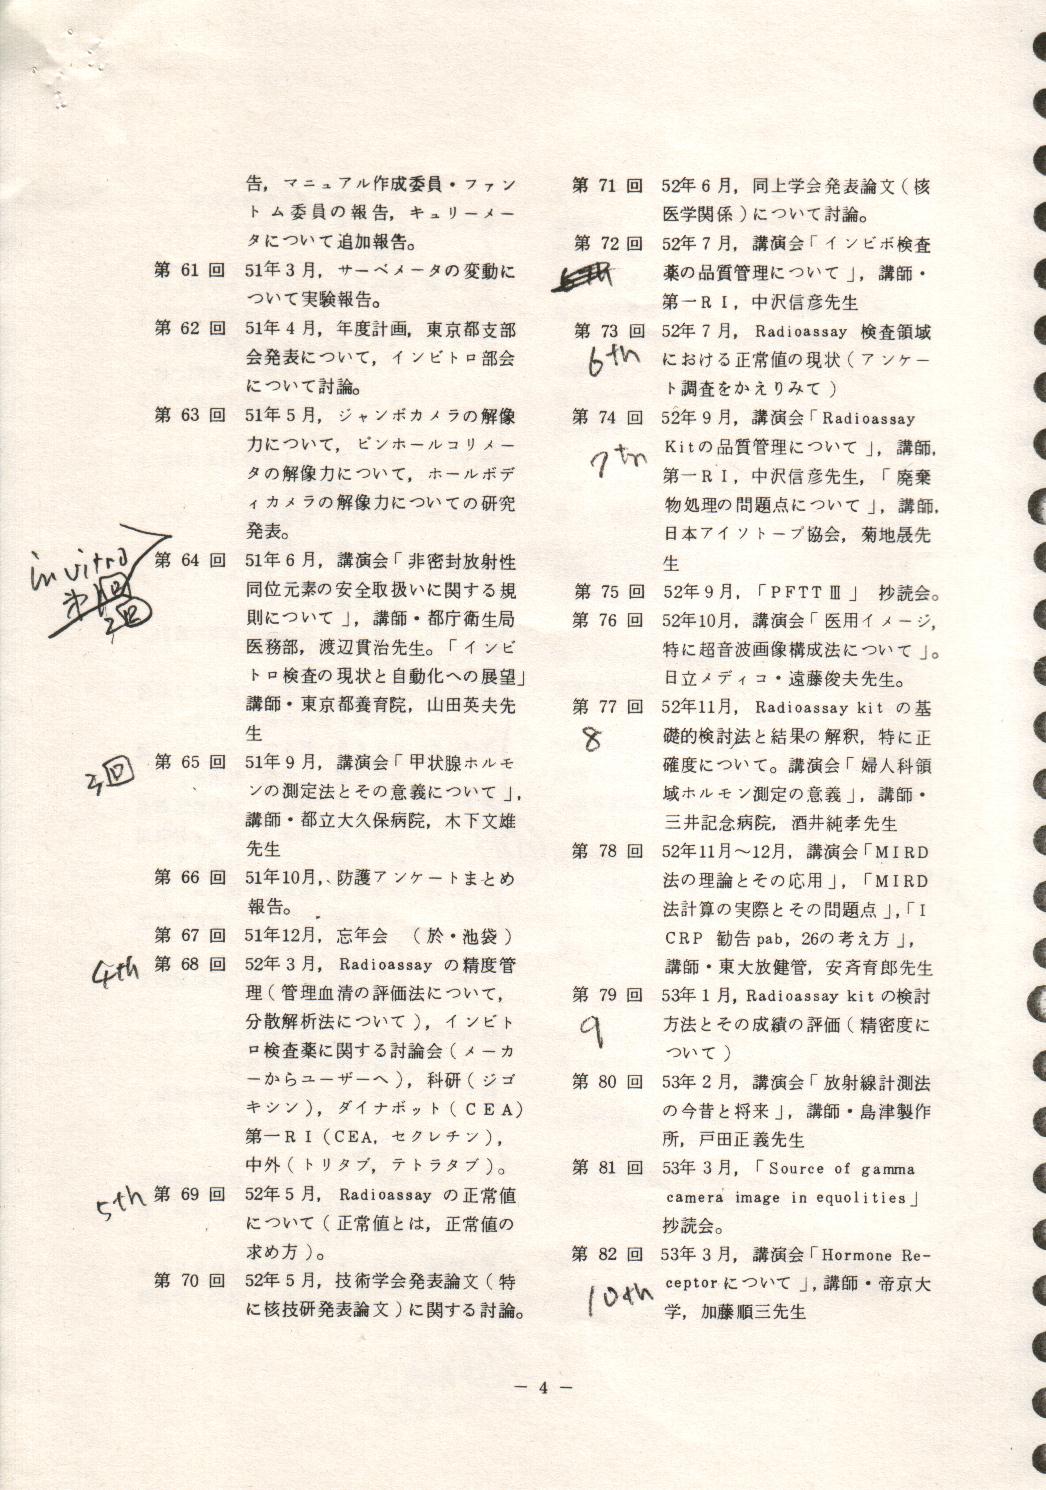 告，マニュアル作成委員・ファン
トム委員の報告，キュリーメー
タについて追加報告。
第 61 回 51年3月，サーベメータの変動に
ついて実験報告。
第 62 回 51年4月，年度計画，東京都支部
会発表について，インビトロ部会
について討論。
第 63 回 51年5月，ジャンボカメラの解像
力について，ピンホールコリメー
タの解像力について，ホールボデ
ィカメラの解像力についての研究
発表。
in vitro
2回
第 64 回 51年6月，講演会「非密封放射性
同位元素の安全取扱いに関する規
則について」，講師・都庁衛生局
医務部，渡辺貫治先生。「インビ
トロ検査の現状と自動化への展望」
講師・東京都養育院，山田英夫先
生
3回
第 65 回 51年9月，講演会「甲状腺ホルモ
ンの測定法とその意義について」，
講師・都立大久保病院，木下文雄
先生
第 66 回 51年10月，防護アンケートまとめ
報告。
第 67 回 51年12月，忘年会 （於・池袋）
4th
第 68 回 52年3月，Radioassay の精度管
理（管理血清の評価法について，
分散解析法について），インビト
ロ検査薬に関する討論会（メーカ
ーからユーザーへ），科研（ジゴ
キシン），ダイナボット（CEA）
第一RI（CEA，セクレチン），
中外（トリタブ，テトラタブ）。
5th
第 69 回 52年5月，Radioassay の正常値
について（正常値とは，正常値の
求め方）。
第 70 回 52年5月，技術学会発表論文（特
に核技研発表論文）に関する討論。
第 71 回 52年6月，同上学会発表論文（核
医学関係）について討論。
第 72 回 52年7月，講演会「インビボ検査
薬の品質管理について」，講師・
第一RI，中沢信彦先生
第 73 回 52年7月，Radioassay 検査領域
6th
における正常値の現状（アンケー
ト調査をかえりみて）
第 74 回 52年9月，講演会「Radioassay
Kitの品質管理について」，講師，
7th
第一RI，中沢信彦先生，「廃棄
物処理の問題点について」，講師，
日本アイソトープ協会，菊地晟先
生
第 75 回 52年9月，「PFTTⅢ」 抄読会。
第 76 回 52年10月，講演会「医用イメージ，
特に超音波画像構成法について」。
日立メディコ・遠藤俊夫先生。
第 77 回 52年11月，Radioassay kit の基
8
礎的検討法と結果の解釈，特に正
確度について。講演会「婦人科領
域ホルモン測定の意義」，講師・
三井記念病院，酒井純孝先生
第 78 回 52年11月～12月，講演会「MIRD
法の理論とその応用」，「MIRD
法計算の実際とその問題点」，「I
CRP 勧告pab，26の考え方」，
講師・東大放健管，安斉育郎先生
第 79 回 53年1月，Radioassay kitの検討
9
方法とその成績の評価（精密度に
ついて）
第 80 回 53年2月，講演会「放射線計測法
の今昔と将来」，講師・島津製作
所，戸田正義先生
第 81 回 53年3月，「Source of gamma
camera image in equolities」
抄読会。
第 82 回 53年3月，講演会「Hormone Re-
10th
ceptorについて」，講師・帝京大
学，加藤順三先生
－ 4 －